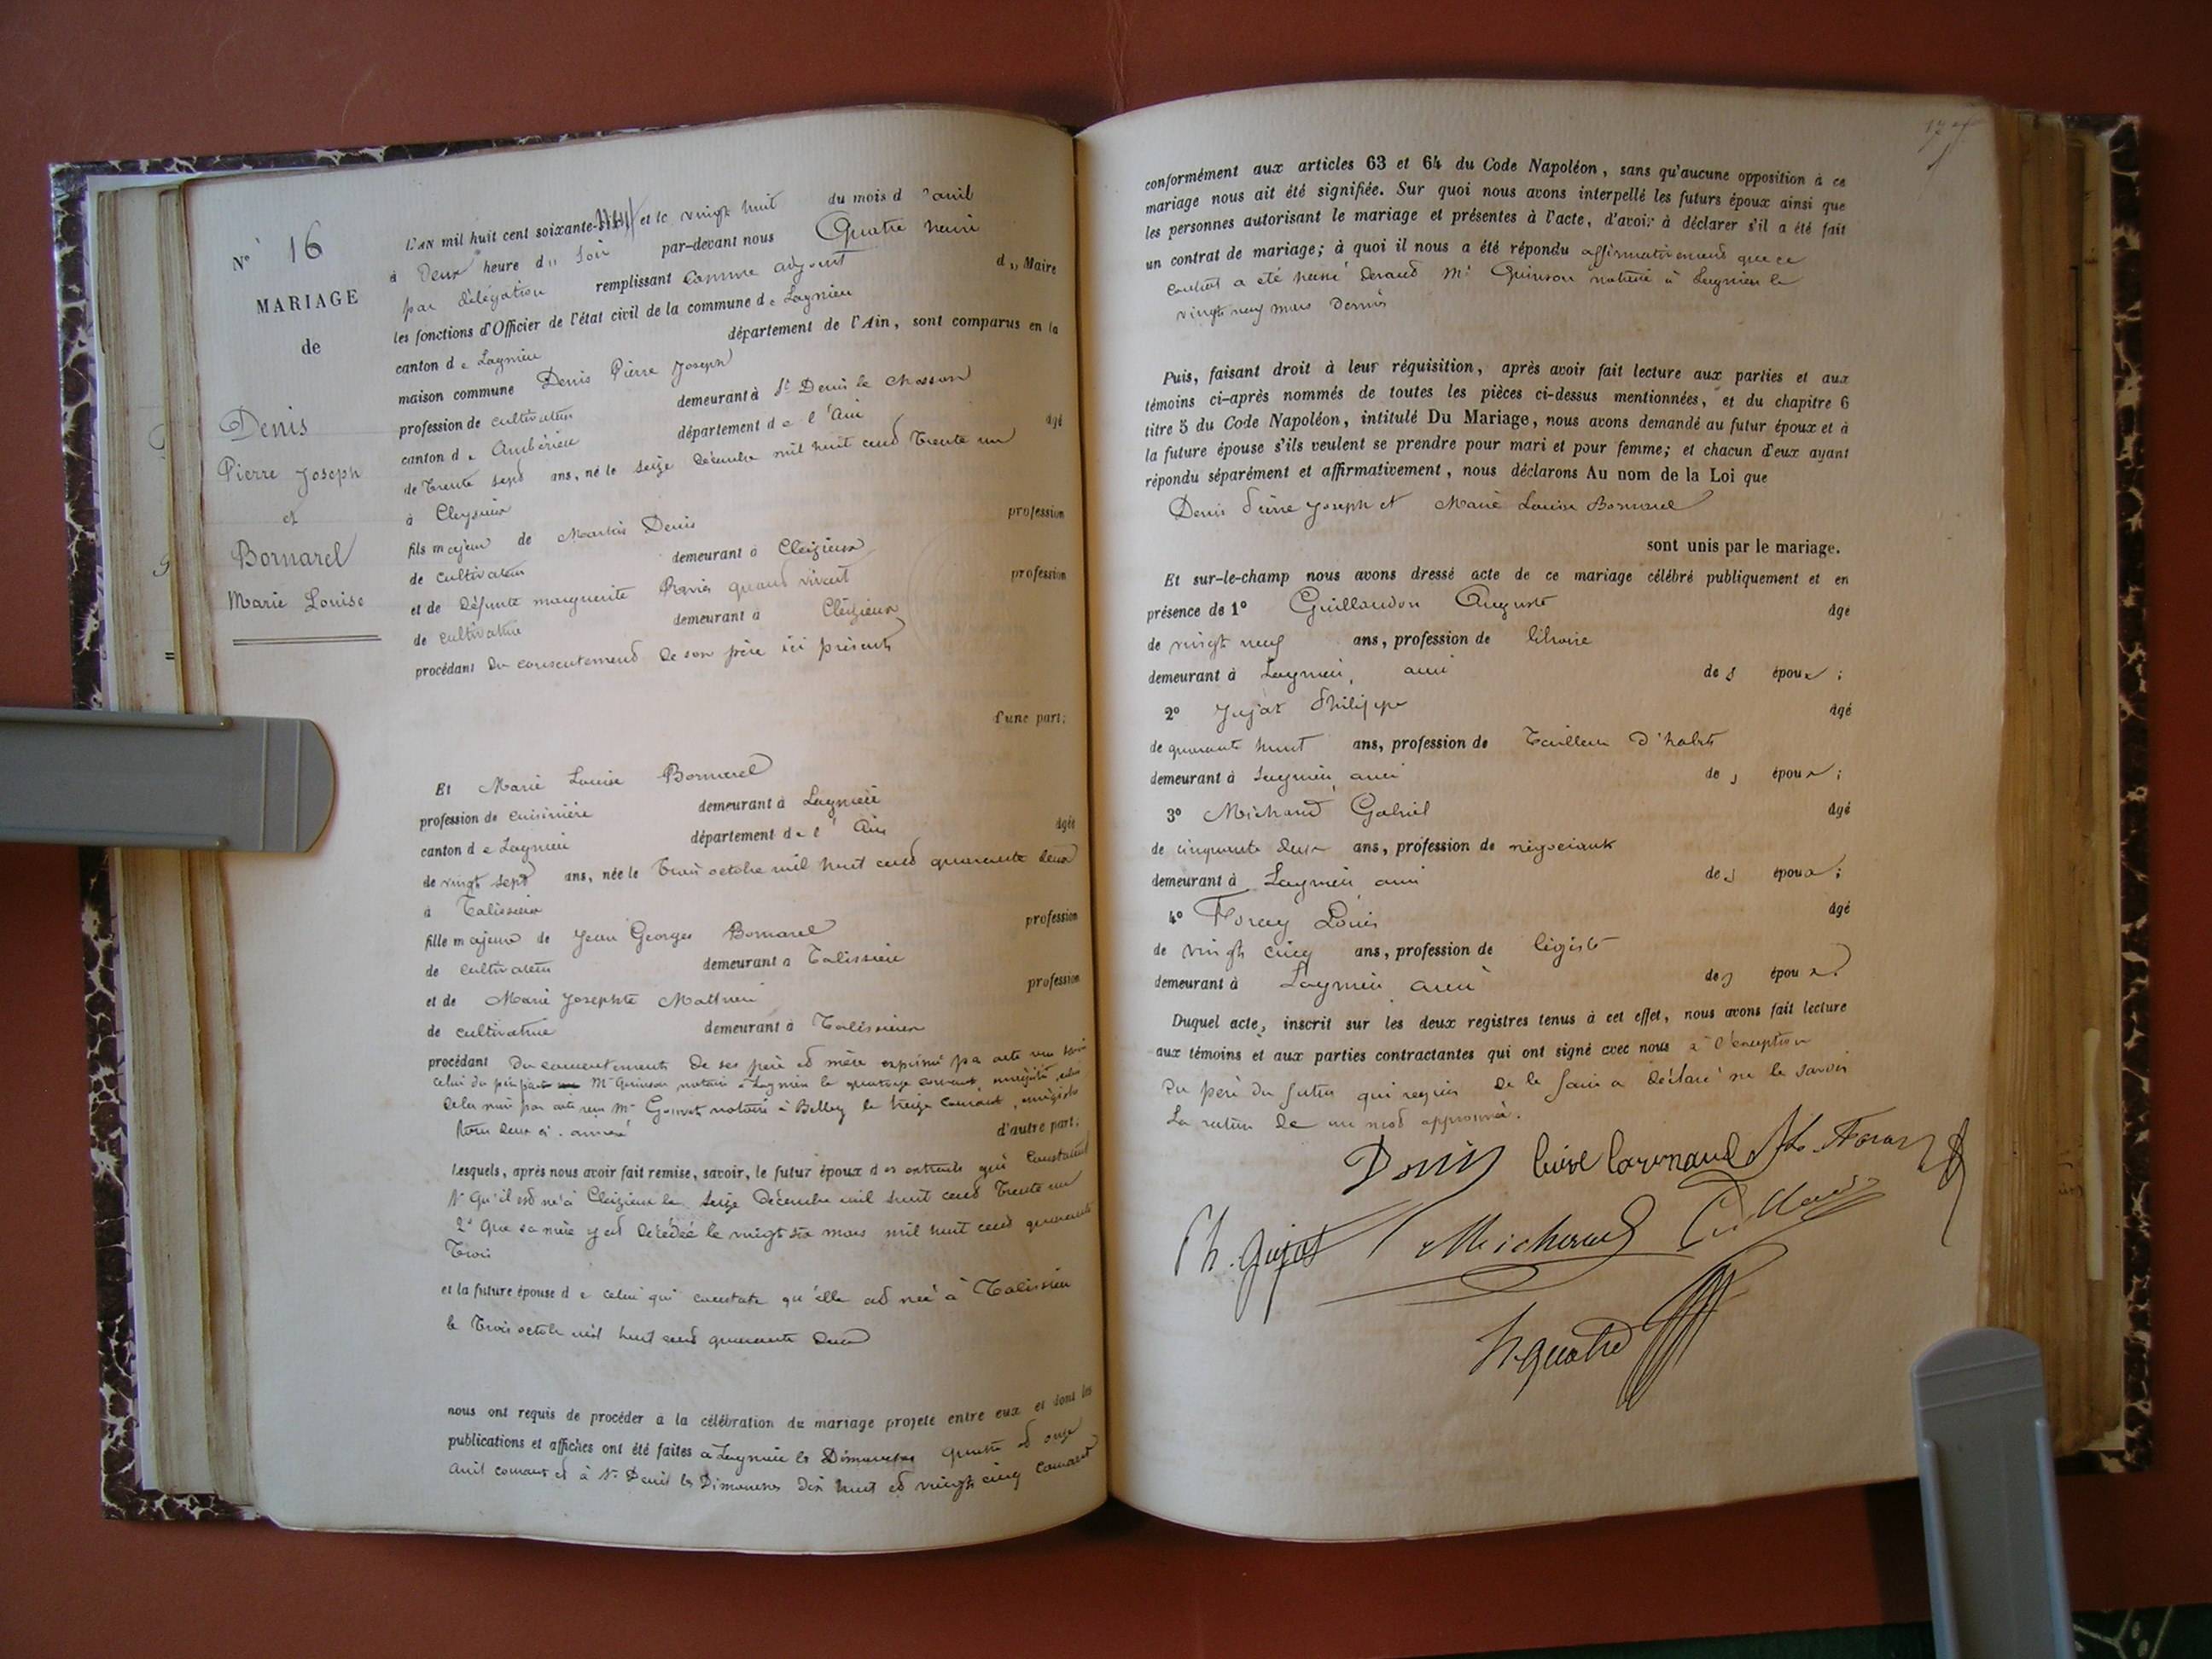 N° 16
MARIAGE
de
Denis
Pierre Joseph
et
Bornarel
Marie Louise
L'AN mil huit cent soixante- et le vingt huit du mois d'avril
à Deux heure du soir par-devant nous Quatre henri
par délégation remplissant comme adjoint du Maire
les fonctions d'Officier de l'état civil de la commune de Lagnieu
canton de Lagnieu département de l'Ain, sont comparus en la
maison commune Denis Pierre Joseph
profession de cultivateur demeurant à St Denis le chosson
canton d'Ambérieu département de l'Ain âgé
de Trente sept ans, né le seize Décembre mil huit cent Trente un
à Cleyzieu
fils majeur de Martin Denis profession
de cultivateur demeurant à Cleizieux
et de défunte marguerite quand vivait profession
de cultivatrice demeurant à Cleizieux
procédant du consentement de son père ici présent
d'une part;
Et Marie Louise Bornarel
profession de cuisinière demeurant à Lagnieu
canton de Lagnieu département de l'Ain âgée
de vingt sept ans, née le Trois octobre mil huit cent quarante deux
à Talissieu
fille majeure de Jean Georges Bornarel profession
de cultivateur demeurant à Talissieu
et de Marie Josephte Mathieu profession
de cultivatrice demeurant à Talissieu
procédant du consentement de ses père et mère exprimé par acte
celui du père Me Quinson notaire à Lagnieu le quatorze courant, enregistré, celui
de la mère par acte reçu Me notaire à Belley le treize courant, enregistré
d'autre part;
Lesquels, après nous avoir fait remise, savoir, le futur époux des extraits qui constatent
1° Qu'il est né à Cleizieu le seize Décembre mil huit cent Trente un
2° Que sa mère y est décédée le vingt six mars mil huit cent quarante
Trois
et la future épouse de celui qui constate qu'elle est née à Talissieu
le Trois octobre mil huit cent quarante deux
nous ont requis de procéder à la célébration du mariage projeté entre eux et dont les
publications et affiches ont été faites à Lagnieu les Dimanches quatre et onze
avril courant et à St Denis les Dimanches dix huit et vingt cinq courant
conformément aux articles 63 et 64 du Code Napoléon, sans qu'aucune opposition à ce
mariage nous ait été signifiée. Sur quoi nous avons interpellé les futurs époux ainsi que
les personnes autorisant le mariage et présentes à l'acte, d'avoir à déclarer s'il a été fait
un contrat de mariage; à quoi il nous a été répondu affirmativement que ce
contrat a été passé devant Me Quinson notaire à Lagnieu le
vingt neuf mars dernier
Puis, faisant droit à leur réquisition, après avoir fait lecture aux parties et aux
témoins ci-après nommés de toutes les pièces ci-dessus mentionnées, et du chapitre 6
titre 5 du Code Napoléon, intitulé Du Mariage, nous avons demandé au futur époux et à
la future épouse s'ils veulent se prendre pour mari et pour femme; et chacun d'eux ayant
répondu séparément et affirmativement, nous déclarons Au nom de la Loi que
Denis Pierre Joseph et Marie Louise Bornarel
sont unis par le mariage.
Et sur-le-champ nous avons dressé acte de ce mariage célébré publiquement et en
présence de 1° Guillaudon Auguste âgé
de vingt neuf ans, profession de libraire
demeurant à Lagnieu, ami des époux;
2° Jujat Philippe âgé
de quarante huit ans, profession de Tailleur d'habits
demeurant à Lagnieu ami des époux;
3° Michaud Gabriel âgé
de cinquante deux ans, profession de négociant
demeurant à Lagnieu ami des époux;
4° Foray Louis âgé
de vingt cinq ans, profession de légiste
demeurant à Lagnieu ami des époux.
Duquel acte, inscrit sur les deux registres tenus à cet effet, nous avons fait lecture
aux témoins et aux parties contractantes qui ont signé avec nous à l'exception
du père du futur qui requis de le faire a déclaré ne le savoir
La rature de un mot approuvée.
Denis
Ph. Jujat Michaud
h. quatre